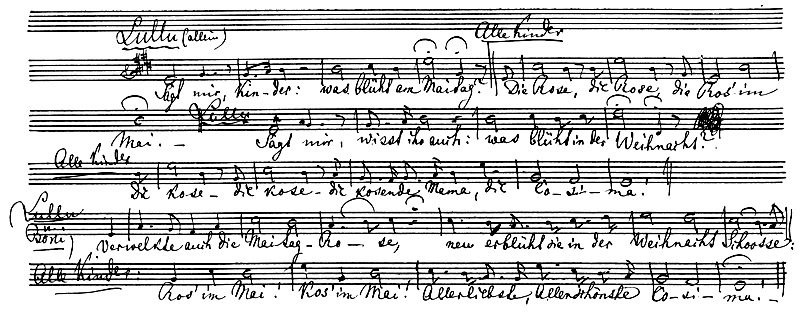 Lullu (allein) Alle Kinder
Sagt mir, Kinder: was blüht am Maitag? Die Rose, die Rose, die Ros' im
Mai. – Lullu Sagt mir, wisst ihr auch: was blüht in der Weihnacht?
Alle Kinder
Die Kose – die Kose – die kosende Mama, die Co – si – ma!
Lullu
(Boni) Verwelkte auch die Maitag – Ro – se, neu erblüht sie in der Weihnacht Schoosse:
Alle Kinder: Ros' im Mai! Ros' im Mai! Allerliebste, Allerschönste Co – si – ma! –